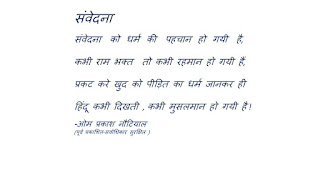 संवेदना
संवेदना को धर्म की पहचान हो गयी है,
कभी राम भक्त तो कभी रहमान हो गयी हैं,
प्रकट करे खुद को पीड़ित का धर्म जानकर ही
हिंदू कभी दिखती , कभी मुसलमान हो गयी है।
-ओम प्रकाश नौटियाल
(पूर्व प्रकाशित-सर्वाधिकार सुरक्षित )